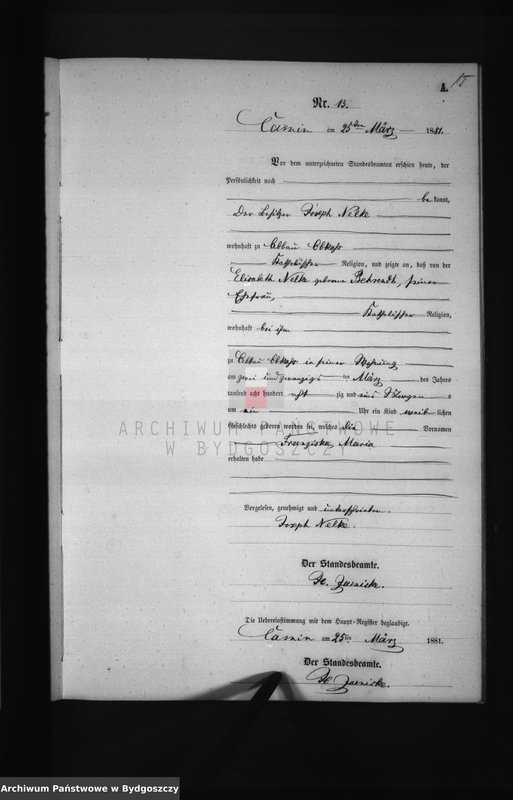 A.
Nr. 13.
Camin am 25ten März 1881.
Vor dem unterzeichneten Standesbeamten erschien heute, der
Persönlichkeit nach
be kannt,
Der Besitzer Joseph Nelke
wohnhaft zu Abbau Obkaß
Katholischer Religion, und zeigte an, daß von der
Elisabeth Nelke geborne Behrendt, seiner
Ehefrau,
Katholischer Religion,
wohnhaft bei ihm
zu Abbau Obkaß in seiner Wohnung
am zwei und zwanzigsten März des Jahres
tausend acht hundert acht zig und eins Morgens
um ein Uhr ein Kind weib lichen
Geschlechts geboren worden sei, welches die Vornamen
Franziska Maria
erhalten habe
Vorgelesen, genehmigt und unterschrieben.
Joseph Nelke.
Der Standesbeamte.
Jaenicke.
Die Uebereinstimmung mit dem Haupt-Register beglaubigt.
Camin am 25ten März 1881.
Der Standesbeamte.
Jaenicke.
ARCHIWUM PAŃSTWOWE
W BYDGOSZCZY
Archiwum Państwowe w Bydgoszczy